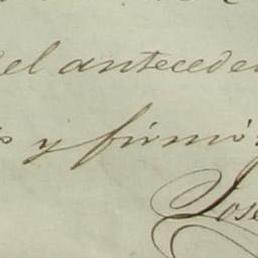 el anteceden
y firmó
José